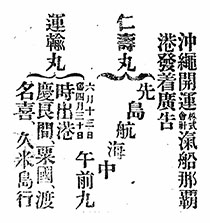 沖繩開運株式会社汽船那覇
港發着廣告
仁壽丸
先島航海中
運輸丸
六月十三日
舊四月三十日
午前九
時出港
慶良間、粟國、渡
名喜 久米島行